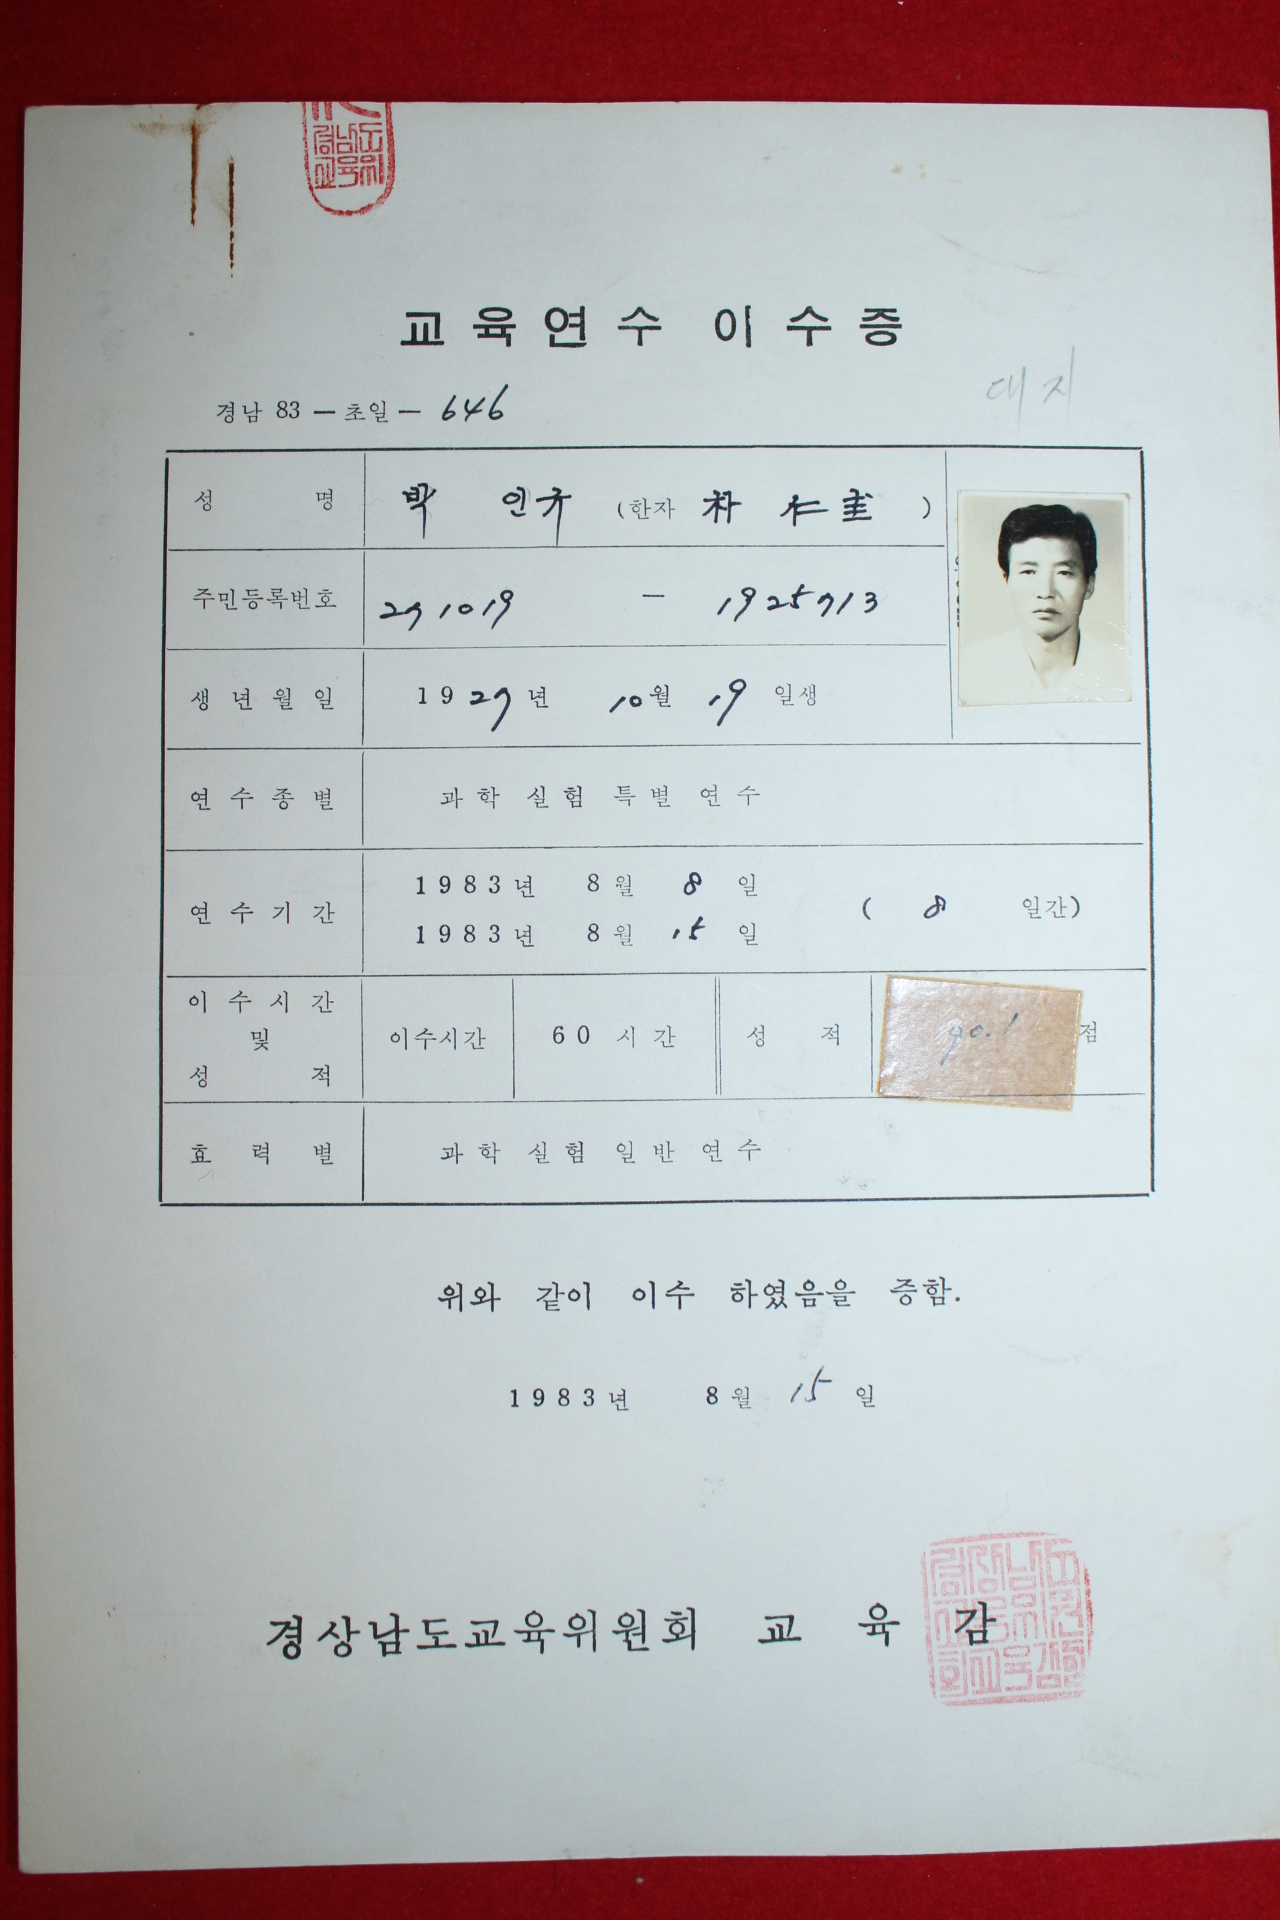 교육연수 이수증
대지
경남 83 — 초일 — 646
성 명 박 인규 (한자 朴 仁圭 )
주민등록번호 291019 — 1925713
생년월일 1929년 10월 19일생
연수종별 과학 실험 특별 연수
연수기간 1983년 8월 8일
1983년 8월 15일 ( 8 일간)
이수시간 및 성적 이수시간 60시간 성 적 90.1 점
효력별 과학 실험 일반 연수
위와 같이 이수 하였음을 증함.
1983년 8월 15일
경상남도교육위원회 교 육 감